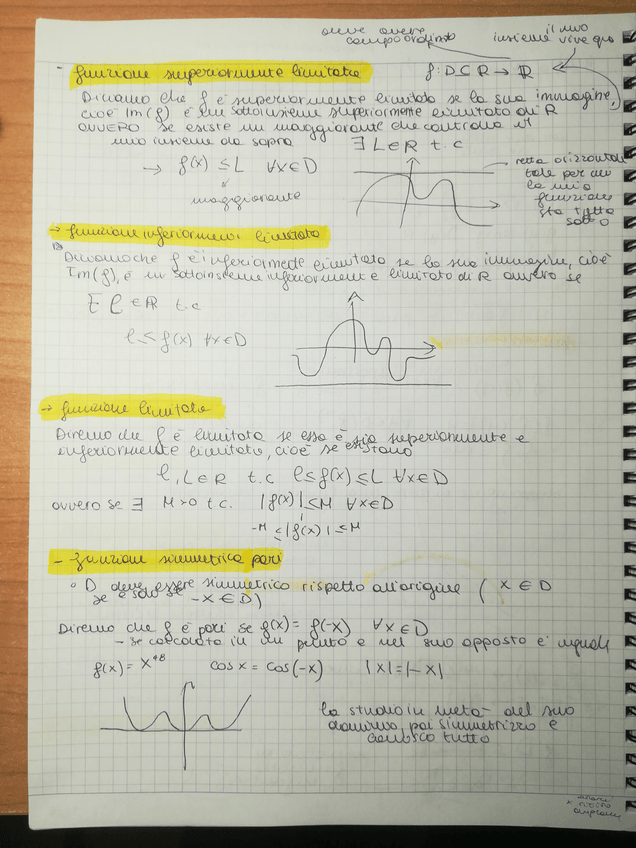 deve avere
campo ordinato
insieme
il suo
vive qua
- funzione superiormente limitata
f: D ⊆ R → R
Diciamo che f è superiormente limitata se la sua immagine,
cioè Im(f) è un sottoinsieme superiormente limitato di R
OVVERO se esiste un maggiorante che controlla il
mio insieme da sopra
∃ L ∈ R t.c
→ f(x) ≤ L ∀x ∈ D
maggiorante
retta orizzontale
tale per cui
la mia
funzione
sta tutta
sotto
→ funzione inferiormente limitata
Diciamo che f è inferiormente limitata se la sua immagine, cioè
Im(f), è un sottoinsieme inferiormente limitato di R ovvero se
∃ l ∈ R t.c
l ≤ f(x) ∀x ∈ D
→ funzione limitata
Diremo che f è limitata se essa è sia superiormente e
inferiormente limitata, cioè se esistono
l, L ∈ R t.c l ≤ f(x) ≤ L ∀x ∈ D
ovvero se ∃ M>0 t.c. |f(x)| ≤ M ∀x ∈ D
-M ≤ |f(x)| ≤ M
- funzioni simmetrica pari
° D deve essere simmetrico rispetto all'origine ( x ∈ D
se e solo se -x ∈ D)
Diremo che f è pari se f(x) = f(-x) ∀x ∈ D
- se calcolata in un punto e nel suo opposto è uguale
cos x = cos(-x) |x| = |-x|
la studio in metà del suo
dominio, poi simmetrizzo e
conosco tutto